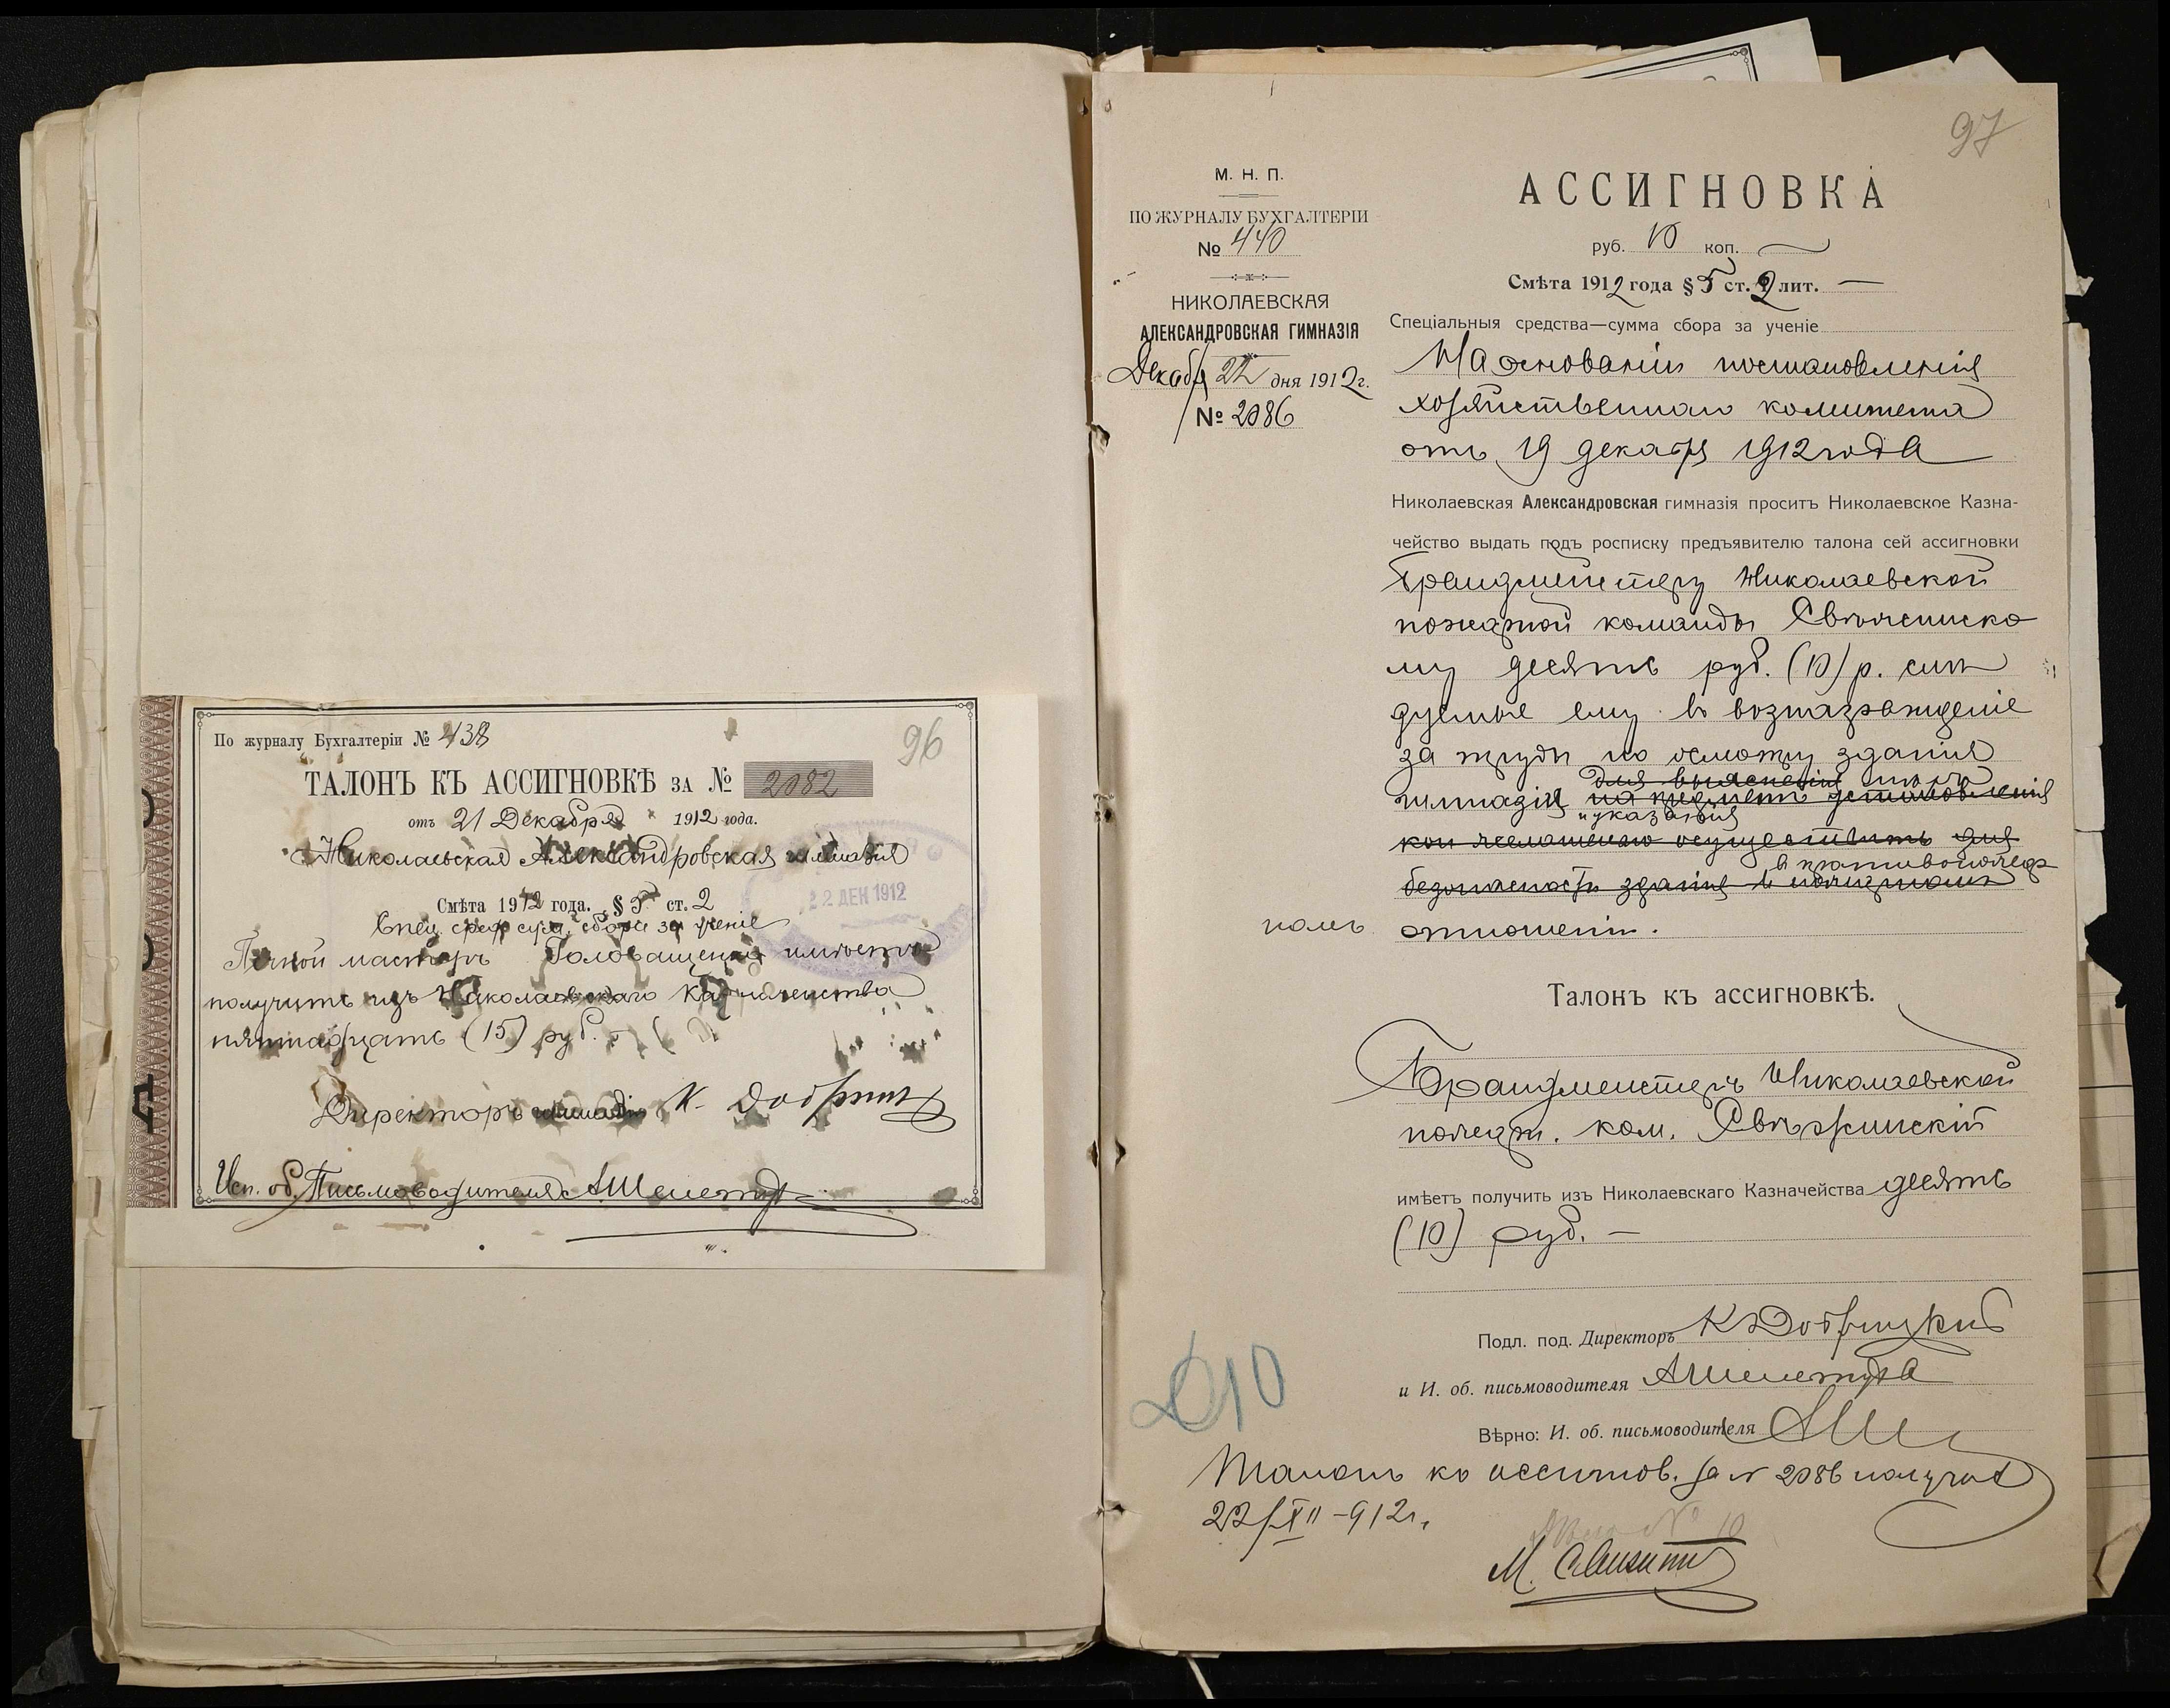 По журналу Бухгалтеріи № 438
96
ТАЛОНЪ КЪ АССИГНОВКѢ ЗА № 2082
отъ 21 Декабря 1912 года.
Николаевская Александровская гимназія
22 ДЕК 1912
Смѣта 1912 года. § 5 ст. 2
Спец. сред. сум. сбора за ученіе
Печной мастеръ Головащенко имѣетъ
получить изъ Николаевскаго Казначейства
пятнадцать (15) руб.
Директоръ гимназіи К. Добр
Исп. об. Письмоводителя А Шелемуха
97
М. Н. П.
ПО ЖУРНАЛУ БУХГАЛТЕРІИ
№ 440
НИКОЛАЕВСКАЯ
АЛЕКСАНДРОВСКАЯ ГИМНАЗІЯ
Декабр 22 дня 1912 г.
№ 2086
АССИГНОВКА
руб. 10 коп. —
Смѣта 1912 года § 5 ст. 2 лит. —
Спеціальныя средства—сумма сбора за ученіе
На основаніи постановленія
хозяйственнаго комитета
отъ 19 декабря 1912 года
Николаевская Александровская гимназія проситъ Николаевское Казна-
чейство выдать подъ росписку предъявителю талона сей ассигновки
Брандмейстеру Николаевской
пожарной команды
му десять руб. (10) р. слѣ
дуемые ему въ вознагражденіе
за труды по осмотру зданія
для выясненія
гимназіи на предметъ установленія
и указанія
кои желательно осуществить для
въ противопожар
безопасности зданія въ пожарномъ
номъ отношеніи.
Талонъ къ ассигновкѣ.
Брандмейстеръ Николаевской
пожарн. ком.
имѣетъ получить изъ Николаевскаго Казначейства десять
(10) руб. —
Подл. под. Директоръ К Добрицкій
и И. об. письмоводителя А Шелемуха
Вѣрно: И. об. письмоводителя А Ше
10
Талонъ къ ассигнов. за № 2086 получилъ
22/XII -912 г.
№ 10
М.